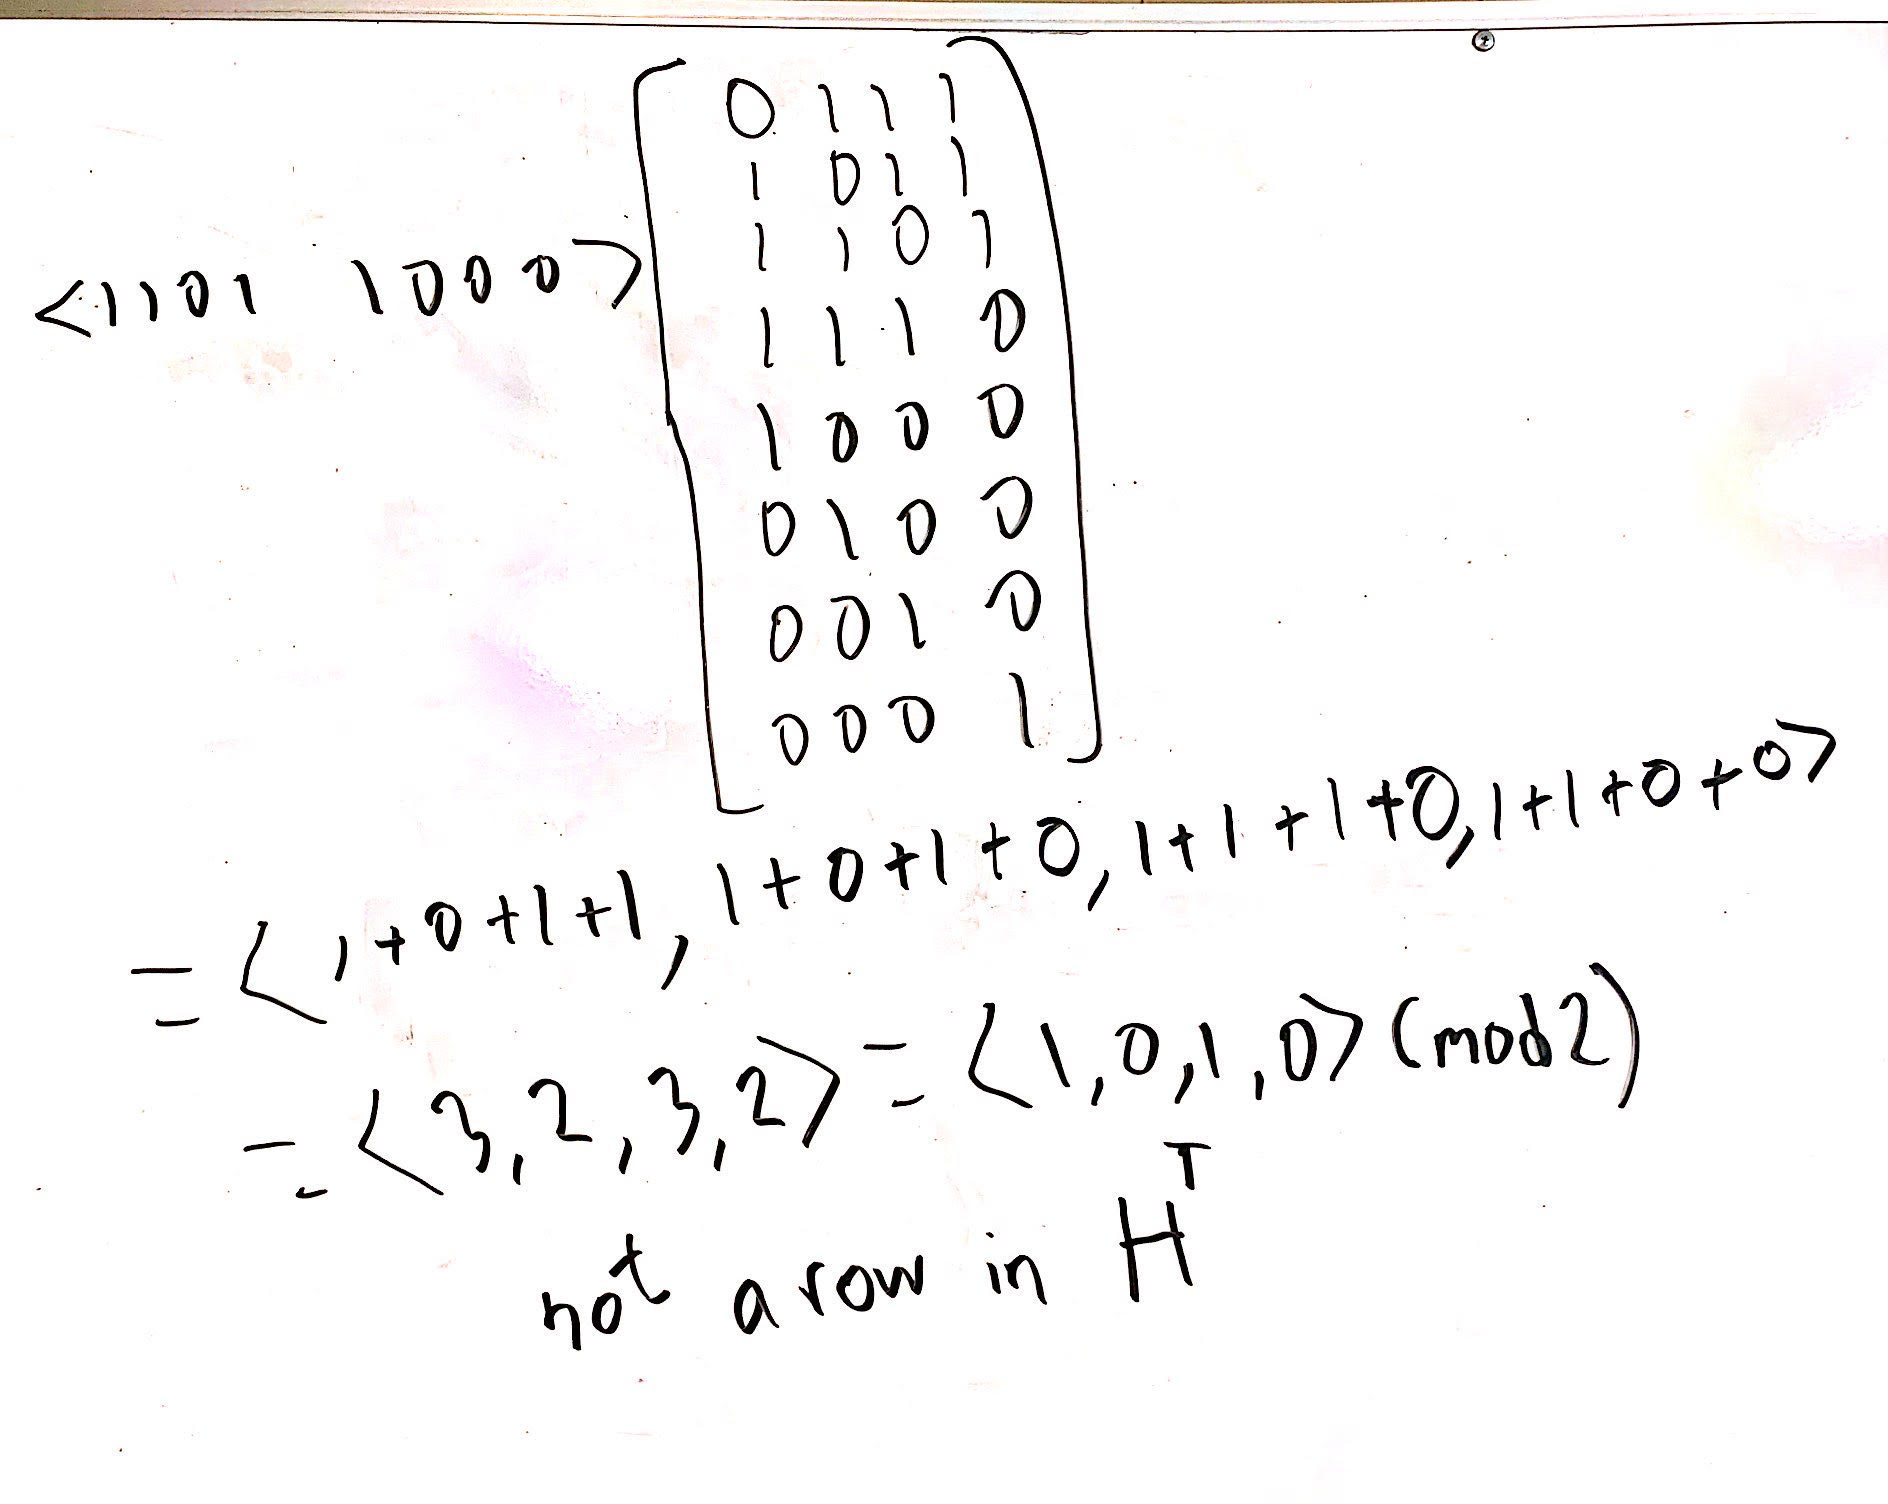 0 1 1 1
1 0 1 1
1 1 0 1
<1101 1000>
1 1 1 0
1 0 0 0
0 1 0 0
0 0 1 0
0 0 0 1
= <1+0+1+1, 1+0+1+0, 1+1+1+0, 1+1+0+0>
= <3,2,3,2> = <1,0,1,0> (mod 2)
not a row in H^T